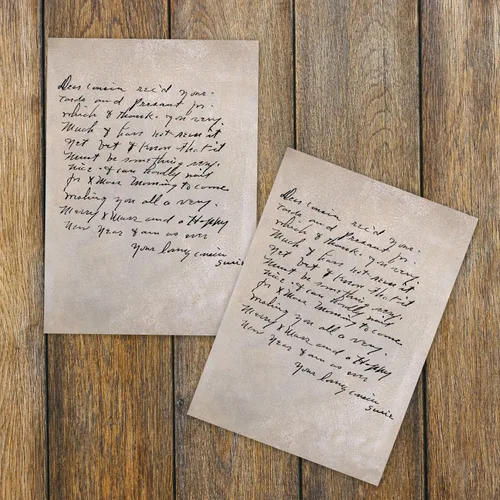 Dear cousin rec'd your
cards and Present for
which I thank. you very.
Much I have not seen it
yet but I know that it
Must be something very.
nice. I can hardly wait
for X Mass Morning to come
making you all a very.
Merry X Mass and a Happy
New Year I am as ever
Your loving cousin
Susie
Dear cousin rec'd your
cards and Present for
which I thank. you very.
Much I have not seen it
yet but I know that it
Must be something very.
nice. I can hardly wait
for X Mass Morning to come
making you all a very.
Merry X Mass and a Happy
New Year I am as ever
Your loving cousin
Susie